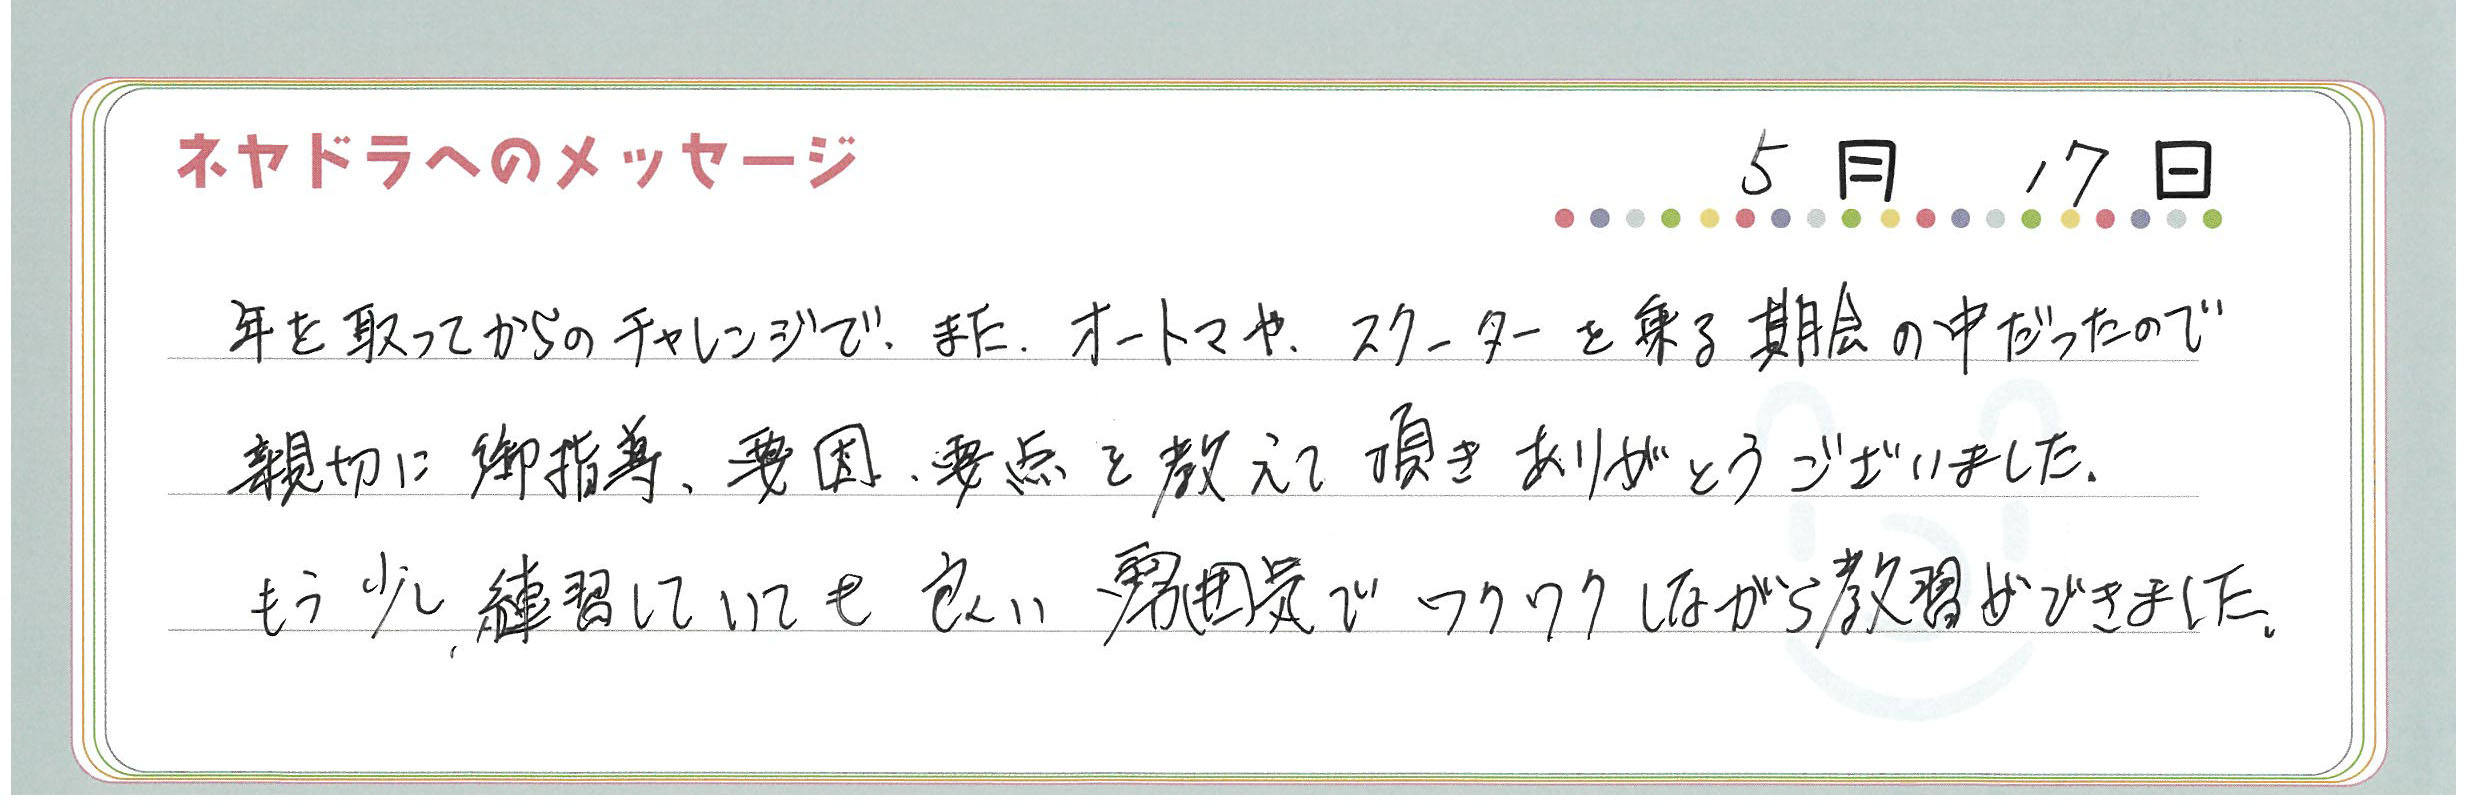 ネヤドラへのメッセージ
5月 17日
年を取ってからのチャレンジで、また、オートマや、スクーターを乗る期会の中だったので
親切に御指導、要因、要点を教えて頂きありがとうございました。
もう少し、練習していても良い雰囲気でワクワクしながら教習ができました。